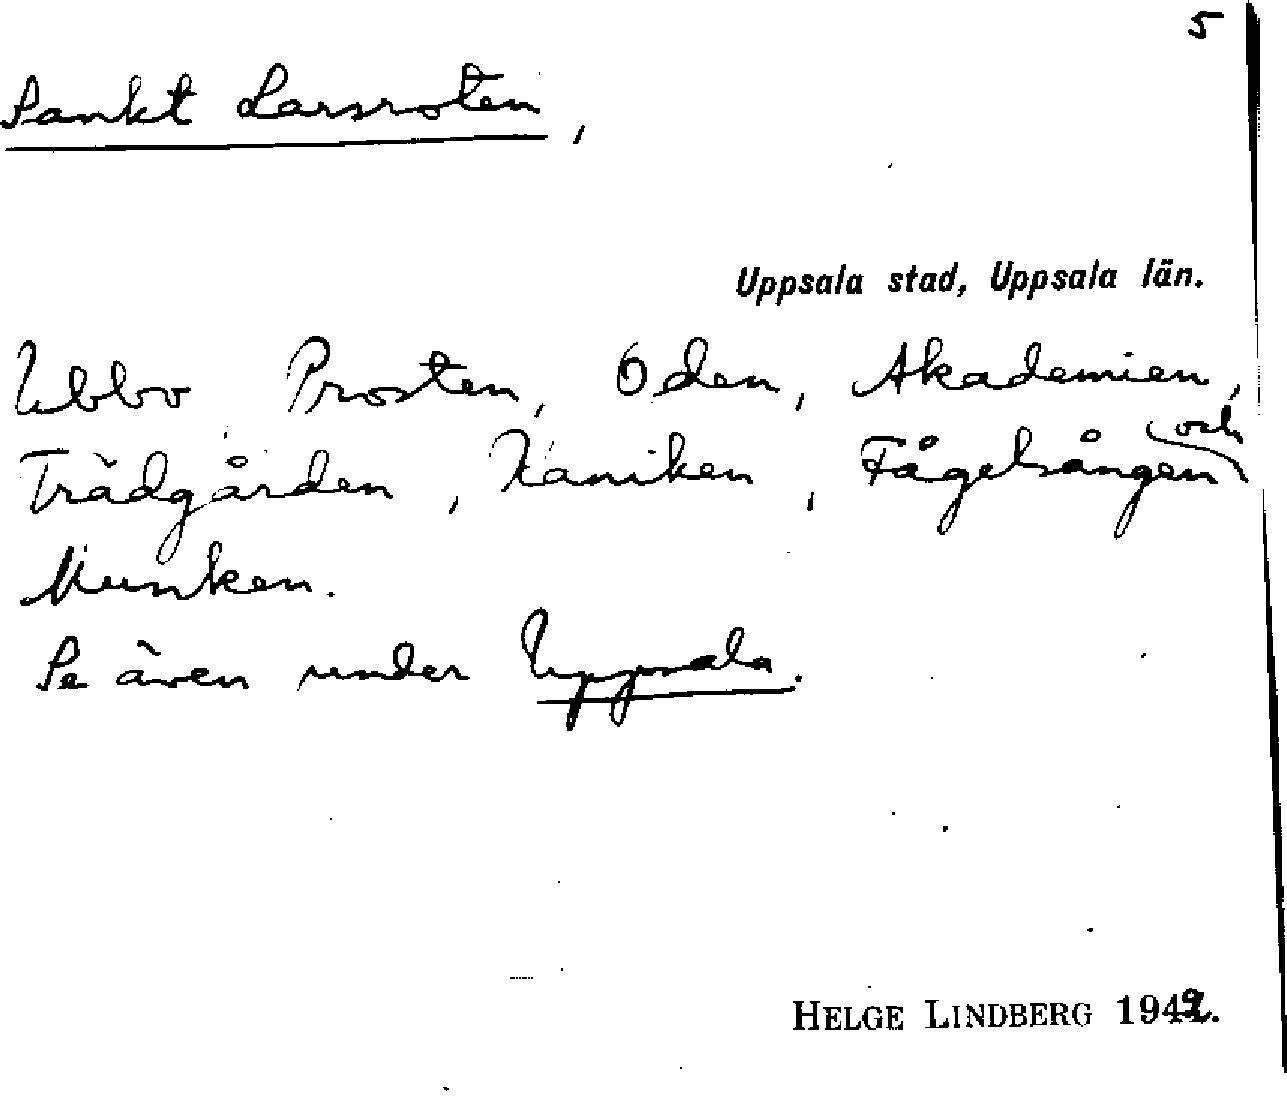 5
Sankt Larsroten,
Uppsala stad, Uppsala län.
Ubbo Prosten, Oden, Akademien,
Trädgården, Kaniken, Fågelsången och
Munken.
Se även under Uppsala.
HELGE LINDBERG 194